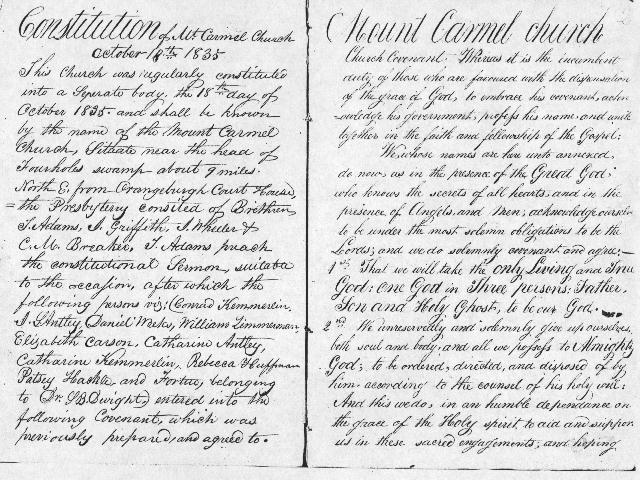 Constitution of Mt Carmel Church
October 18th 1835
This Church was regularly constituted
into a Seperate body, the 18th day of
October 1835. and shall be known
by the name of the Mount Carmel
Church, Situate near the head of
Fourholes swamp about 9 miles.
North E. from Orangeburgh Court House,
= the Presbytery consited of Brethren
J. Adams, J. Griffith, J. Wheeler &
C. M. Breaker, J. Adams preach
the constitutional Sermon, suitable
to the occasion, after which the
following persons viz; Conrad Kemmerlin,
Antley, Daniel Weeks, William Zimmerman,
Elizabeth Carson, Catharin Antley
Catharin Kemmerlin, Rebecca Huffman
Patsey and belonging
to Dr. Dwight) entered into the
following Covenant, which was
previously prepared, and agreed to.
Mount Carmel church
Church Covenant. Whereas it is the incumbent
duty of those who are favoured with the dispensation
of the grace of God, to embrace his covenant, ackn-
owledge his government, profess his name, and unite
together in the faith and fellowship of the Gospel:
We, whose names are here unto annexed,
do now, as in the presence of the Great God;
who knows the secrets of all hearts, and in the
presence of Angels, and Men; acknowledge ourselves
to be under the most solemn obligations to be the
Lords; and we do solemnly covenant and agree; —
1st That we will take the only Living and True
God: one God in Three persons; Father,
Son and Holy Ghost, to be our God.
2nd We unreservedly and solemnly give up ourselves,
both soul and body, and all we profess to Almighty
God; to be ordered, directed, and disposed of by
him. according to the counsel of his holy will:
And this we do, in an humble dependance on
the grace of the Holy spirit to aid and suppor
us in these sacred engagements; and hoping